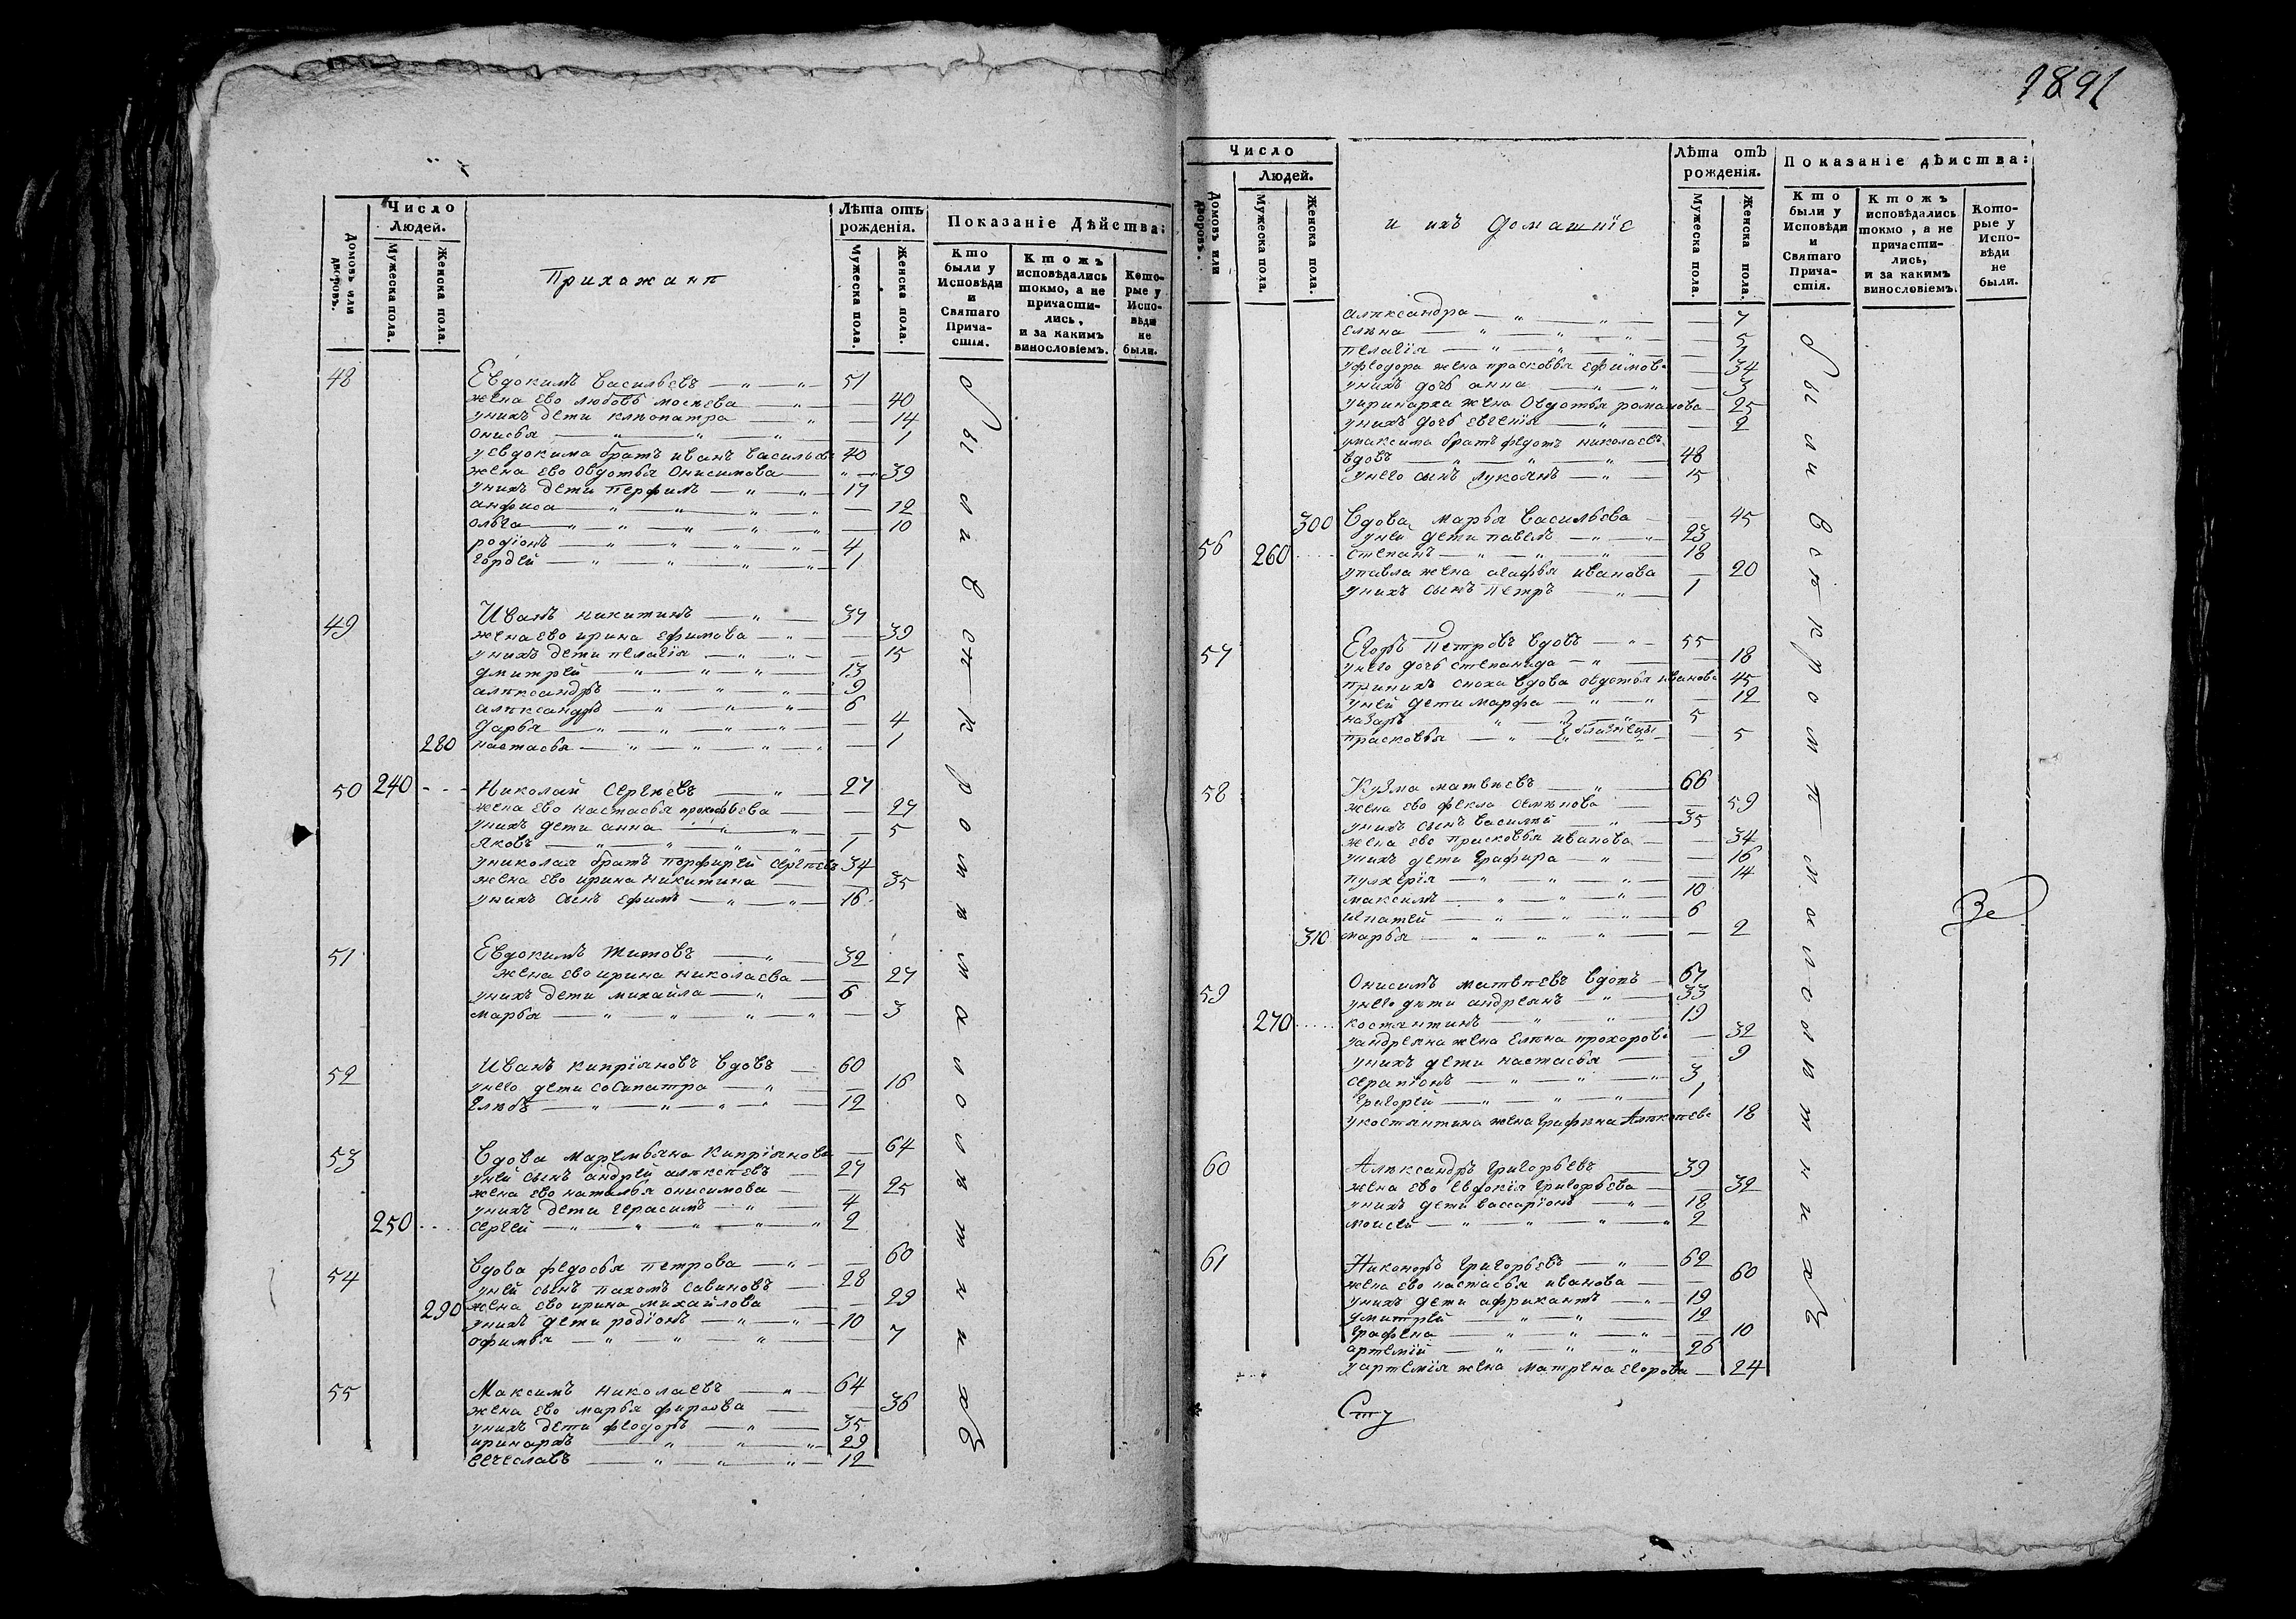 1891
Число
Людей.
Домовъ или дворовъ.
Мужеска пола.
Женска пола.
Прихожанѣ
Лѣта отъ рожденія.
Мужеска пола.
Женска пола.
Показаніе Дѣйства:
Кто были у Исповѣди и Святаго Прича-стія.
Ктожъ исповѣдались токмо, а не причасти-лись, и за какимъ винословіемъ.
Кото-рые у Испо-вѣди не были.
48 Евдокимъ Васильевъ 51
жена ево любовь мосеева 40
унихъ дети клеопатра 14
Онисья 1
уевдокима братъ иванъ Васильевъ 40
жена ево Овдотья Онисимова 39
унихъ дети Перфилъ 17
анфиса 12
ольга 10
родіонъ 4
гордей 1
49 Иванъ никитинъ 37
жена ево ирина ефимова 39
унихъ дети пелагія 15
дмитрей 13
алѣксандръ 9
алѣксандръ 6
дарья 4
280 настасья 1
50 240 Николай Сергѣевъ 27
жена ево настасья прокофьева 27
унихъ дети анна 5
яковъ 1
униколая братъ порфирей сергѣевъ 34
жена ево ирина никитина 35
унихъ сынъ ефимъ 16
51 Евдокимъ Титовъ 32
жена ево ирина николаева 27
унихъ дети михайла 6
марья 3
52 Иванъ кипріяновъ вдовъ 60
унего дети сосипатра 16
глѣбъ 12
53 Вдова маремьяна кипріянова 64
уней сынъ андрей алѣксѣевъ 27
жена ево наталья онисимова 25
унихъ дети герасимъ 4
250 сергей 2
54 Вдова федосья петрова 60
уней сынъ пахомъ савиновъ 28
290 жена ево ирина михайлова 29
унихъ дети родіонъ 10
офимья 7
55 Максимъ николаевъ 64
жена ево марья фирсова 36
унихъ дети феодоръ 35
иринархъ 29
вечеславъ 12
были вси кромѣ малолѣтнихъ
Число
Людей.
Домовъ или дворовъ.
Мужеска пола.
Женска пола.
и ихъ домашніе
Лѣта отъ рожденія.
Мужеска пола.
Женска пола.
Показаніе дѣиства:
Кто были у Исповѣди и Святаго Прича-стія.
Ктожъ исповѣдались токмо, а не причасти-лись, и за какимъ винословіемъ.
Кото-рые у Испо-вѣди не были.
алѣксандра 7
елѣна 5
пелагія 1
уфеодора жена прасковья ефимова 34
унихъ дочь анна 3
уиринарха жена Овдотья романова 25
унихъ дочь евгенія 2
умаксима братъ федотъ николаевъ
вдовъ 48
унего сынъ лукоянъ 15
300 Вдова марья Васильева 45
56 уней дети павелъ 23
260 степанъ 18
упавла жена агафья иванова 20
унихъ сынъ петръ 1
57 Егоръ Петровъ вдовъ 55
унего дочь степанида 18
принихъ сноха вдова овдотья иванова 45
уней дети марфа 12
назаръ 5
близнецы
прасковья 5
58 Кузма матвѣевъ 66
жена ево фекла семѣнова 59
унихъ сынъ василей 35
жена ево прасковья иванова 34
унихъ дети графира 16
пулхерія 14
максимъ 10
игнатей 6
310 марья 2
59 Онисимъ матвѣевъ вдовъ 67
унего дѣти андреянъ 33
270 костянтинъ 19
уандреяна жена елѣна прохорова 32
унихъ дети настасья 9
серапіонъ 3
григорей 1
укостянтина жена графина Алѣксѣева 18
60 Алѣксандръ григорьевъ 39
жена ево Евдокія григорьева 32
унихъ дети вассаріонъ 18
моисей 2
61 Никоноръ григорьевъ 62
жена ево настасья иванова 60
унихъ дети африкантъ 19
дмитрей 12
графена 10
артемій 26
уартемія жена матрена егорова 24
были вси кромѣ малолѣтнихъ